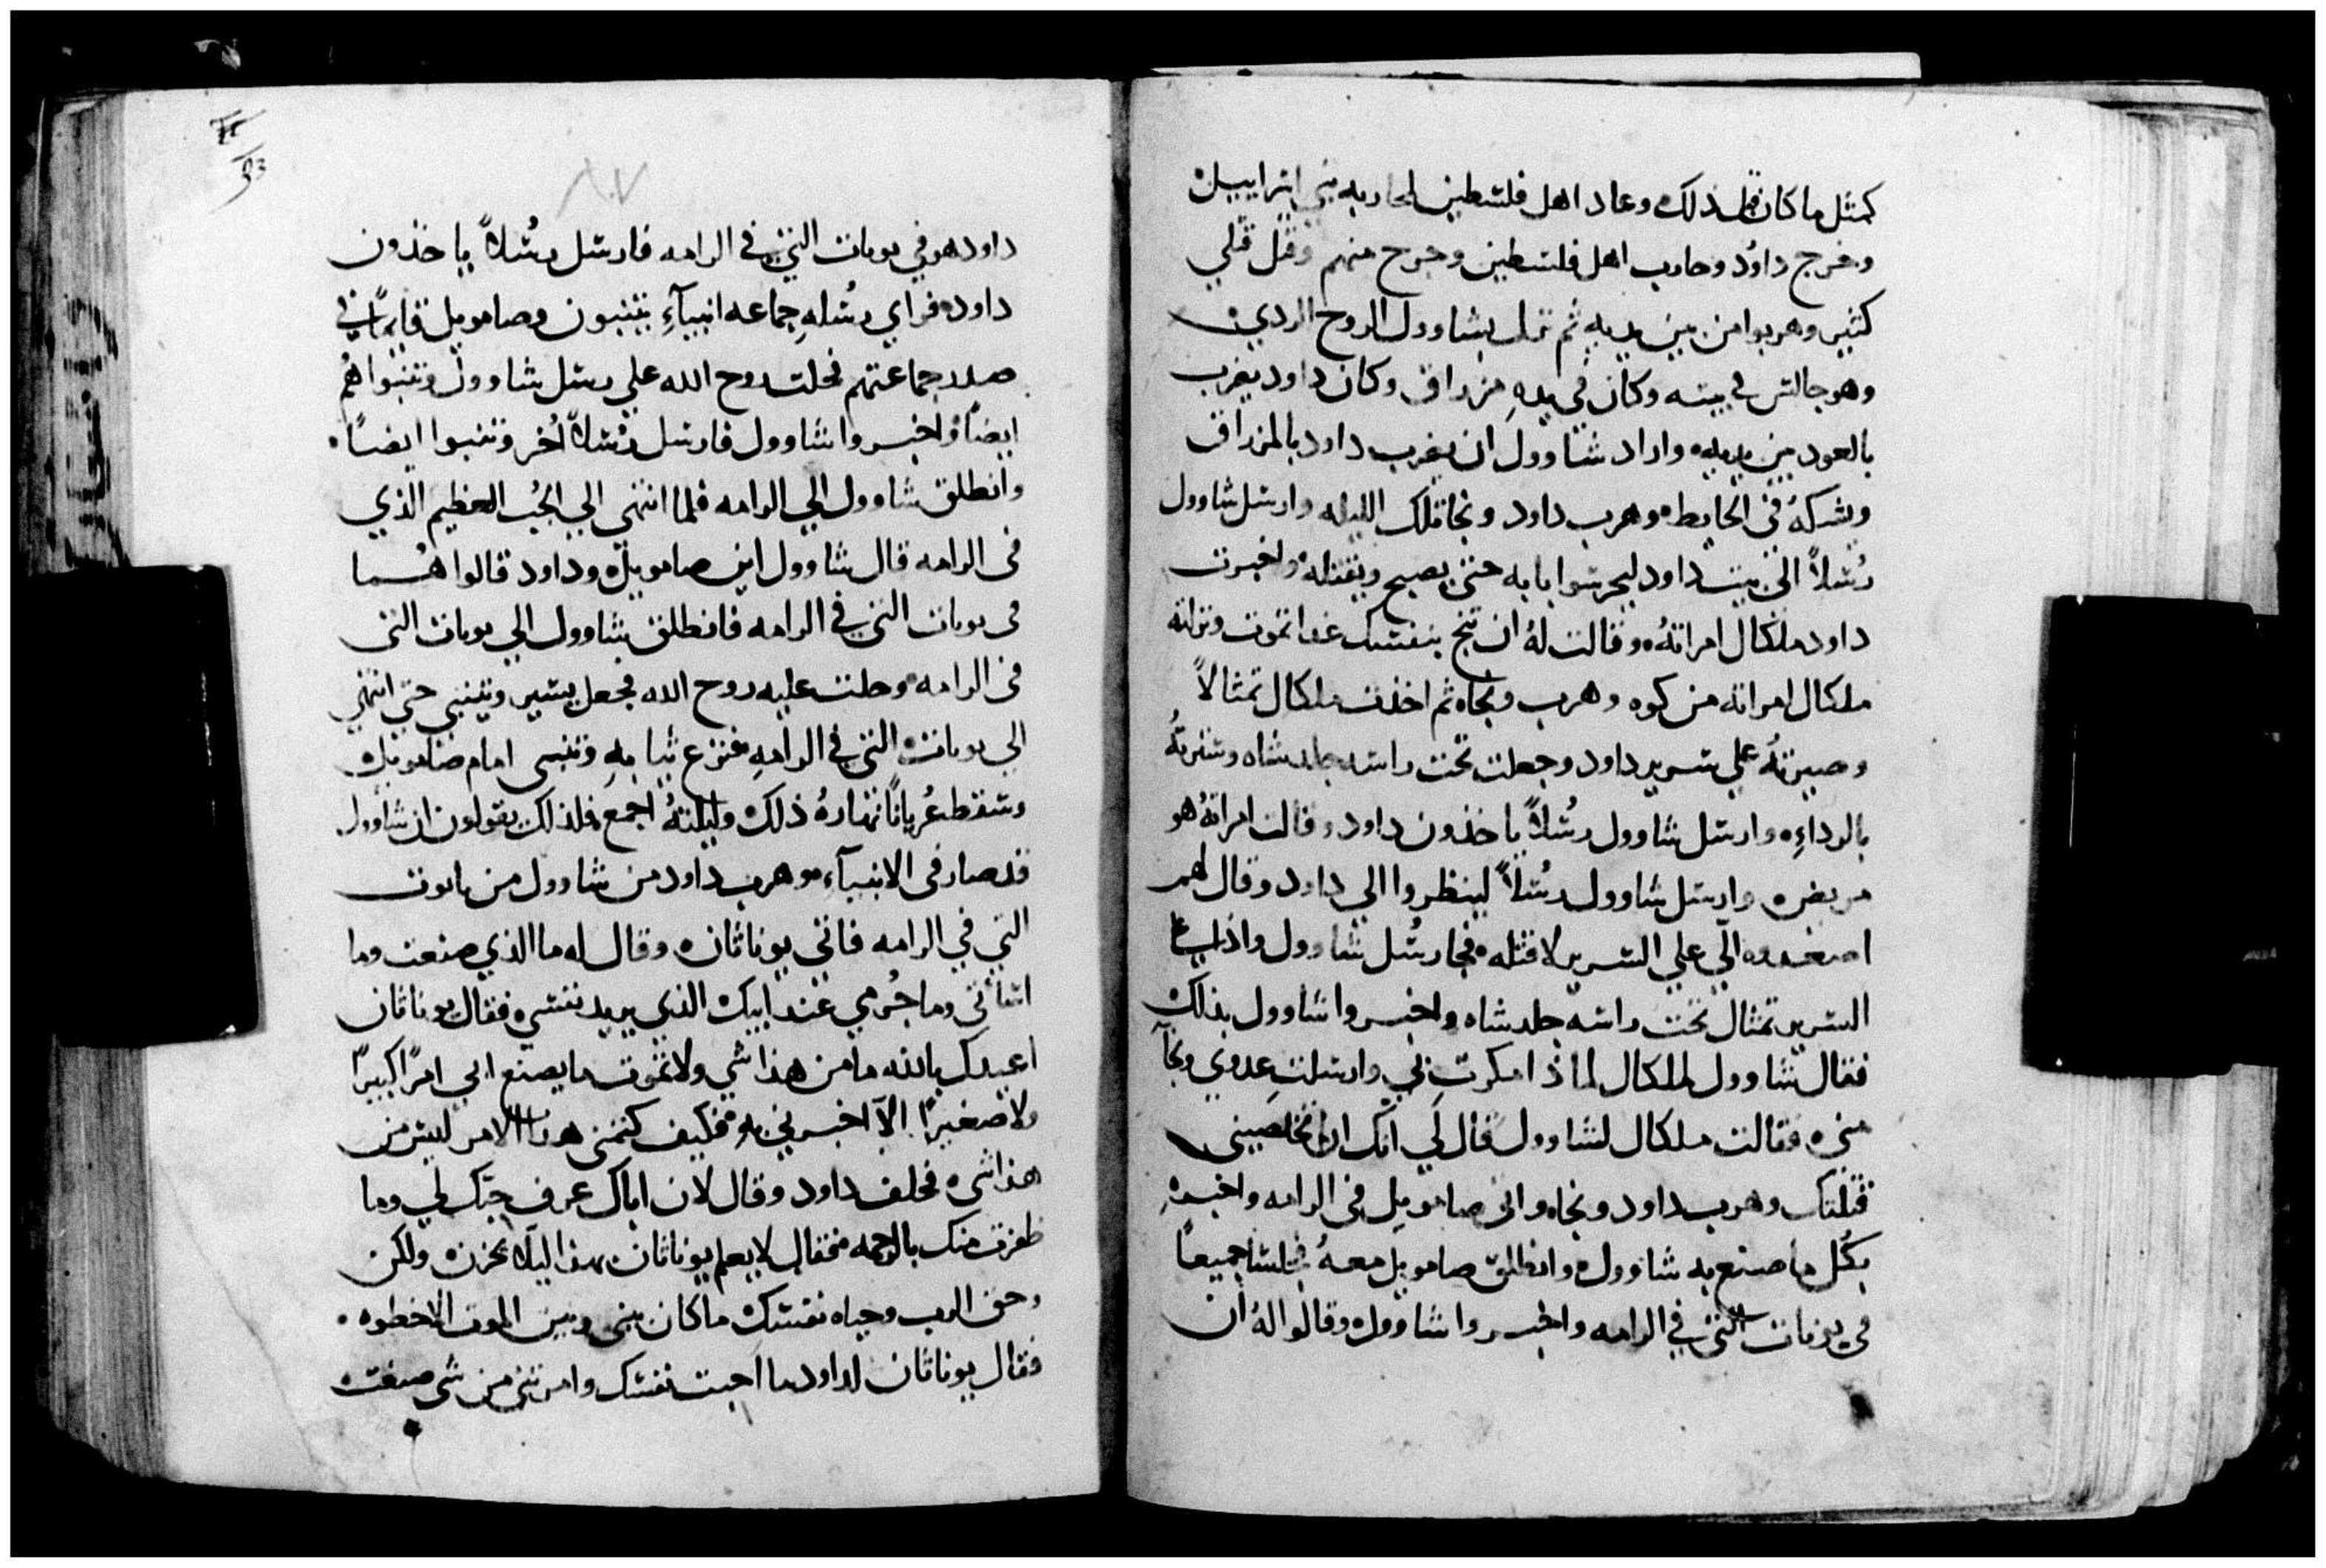 كمثل ما كان قبل ذلك وعاد اهل فلسطين لمحاربه بني اسراييل
وخرج داوُد وحارب اهل فلسطين وجرح منهم وقتل قتلي
كثير وهربوا من بين يديه ثم نزل بشاوول الروح الردي
وهو جالس في بيته وكان في يدهِ مزراق وكان داود يضرب
بالعود بين يديه واراد شاوول ان يضرب داود بالمزراق
ويشركهُ في الحايط وهرب داود ونجا تلك الليله وارسل شاوول
رُسلاً الي بيت داود ليحرسوا بابه حتي يصبح ويقتله واخبرت
داود ملكال امراتهُ وقالت لهُ ان تنج بنفسك غدا تموت ونزلته
ملكال امراته من كوه وهرب ونجاه ثم اخذت ملكال تمثالاً
وصيرتهُ علي سرير داود وجعلت تحت راسه جلد شاه وسترتهُ
بالرداءِ وارسل شاوول رسُلاً ياخذون داود وقالت امراتهُ هو
مريض وارسل شاوول رسُلاً لينظروا الي داود وقال لهم
اصعدوه اليّ علي السرير لاقتله فجا رسُل شاوول واذا
السرير تمثال تحت راسه جلد شاه واخبروا شاوول بذلك
فقال شاوول لملكال لماذا مكرتِ بي وارسلتِ عدوي ونجا
مني فقالت ملكال لشاوول قال لي انك ان لم تخلصيني
قتلتك وهرب داود ونجاه واتي صامويل في الرامه واخبره
بكُل ما صنع به شاوول وانطلق صامويل معهُ فجلسا جميعًا
في يونات التي في الرامه واخبروا شاوول وقالوا لهُ ان
داود هو في يونات التي في الرامه فارسل رسُلاً ياخذون
داود فراي رسُلهِ جماعه انبيآءِ يتنبون وصامويل قايمًا في
صدر جماعتهم فحلت روح الله علي رسل شاوول وتنبوا هُم
ايضًا واخبروا شاوول فارسل رُسلاً اُخر وتنبوا ايضًا
وانطلق شاوول الي الرامه فلما انتهي الي الجُب العظيم الذي
في الرامه قال شاوول اين صامويل وداود قالوا هُما
في يونات التي في الرامه فانطلق شاوول الي يونات التي
في الرامه وحلت عليه روح الله فجعل يسير ويتنبي حتي انتهي
الي يونات التي في الرامهِ فنزع ثيابهِ وتنبي امام صامويل
وسقط عُريانًا نهارهُ ذلك وليلتهُ اجمع فلذلك يقولون ان شاوول
قد صار في الانبيآءِ وهرب داود من شاوول من يانوت
التي في الرامه فاتي يوناثان وقال له ما الذي صنعت وما
اسأتي وما جُرمي عند ابيك الذي يريد نفسي فقال يوناثان
اعيدك بالله ما من هذا شي ولا تموت ما يصنع ابي امرًا كبيرًا
ولا صغيرًا الاّ اخبرني بهِ فكيف كتمني هذا الامر ليس من
هذا شي فحلف داود وقال لان اباك عرف حبّك لي وما
ظفرت منك بالرحمه فقال لا يعلم يوناثان بهذا ليلاً تحزن ولكن
وحق الرب وحياه نفسك ما كان بيني وبين الموت الا خطوه
فقال يوناثان لداود ما احبت نفسك وامرتني من شي صنعت